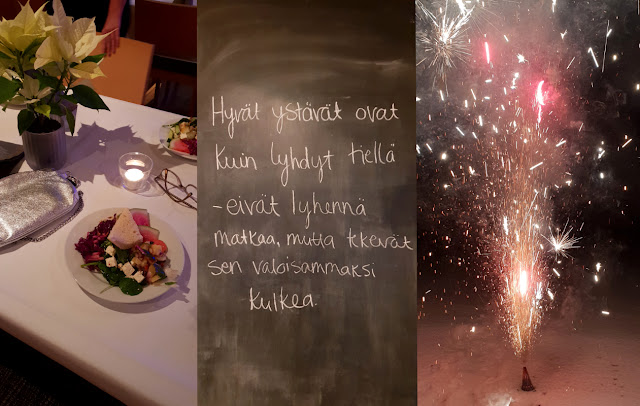 Hyvät ystävät ovat
kuin lyhdyt tiellä
-eivät lyhennä
matkaa, mutta tekevät
sen valoisammaksi
kulkea